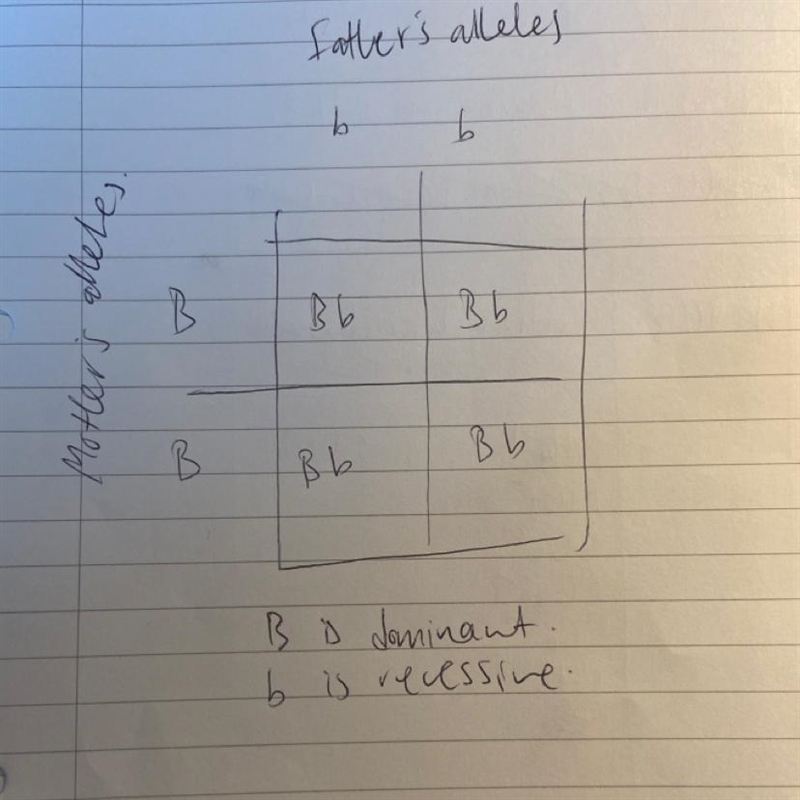 Father's alleles
b b
Mother's alleles.
B Bb Bb
B Bb Bb
B is dominant.
b is recessive.